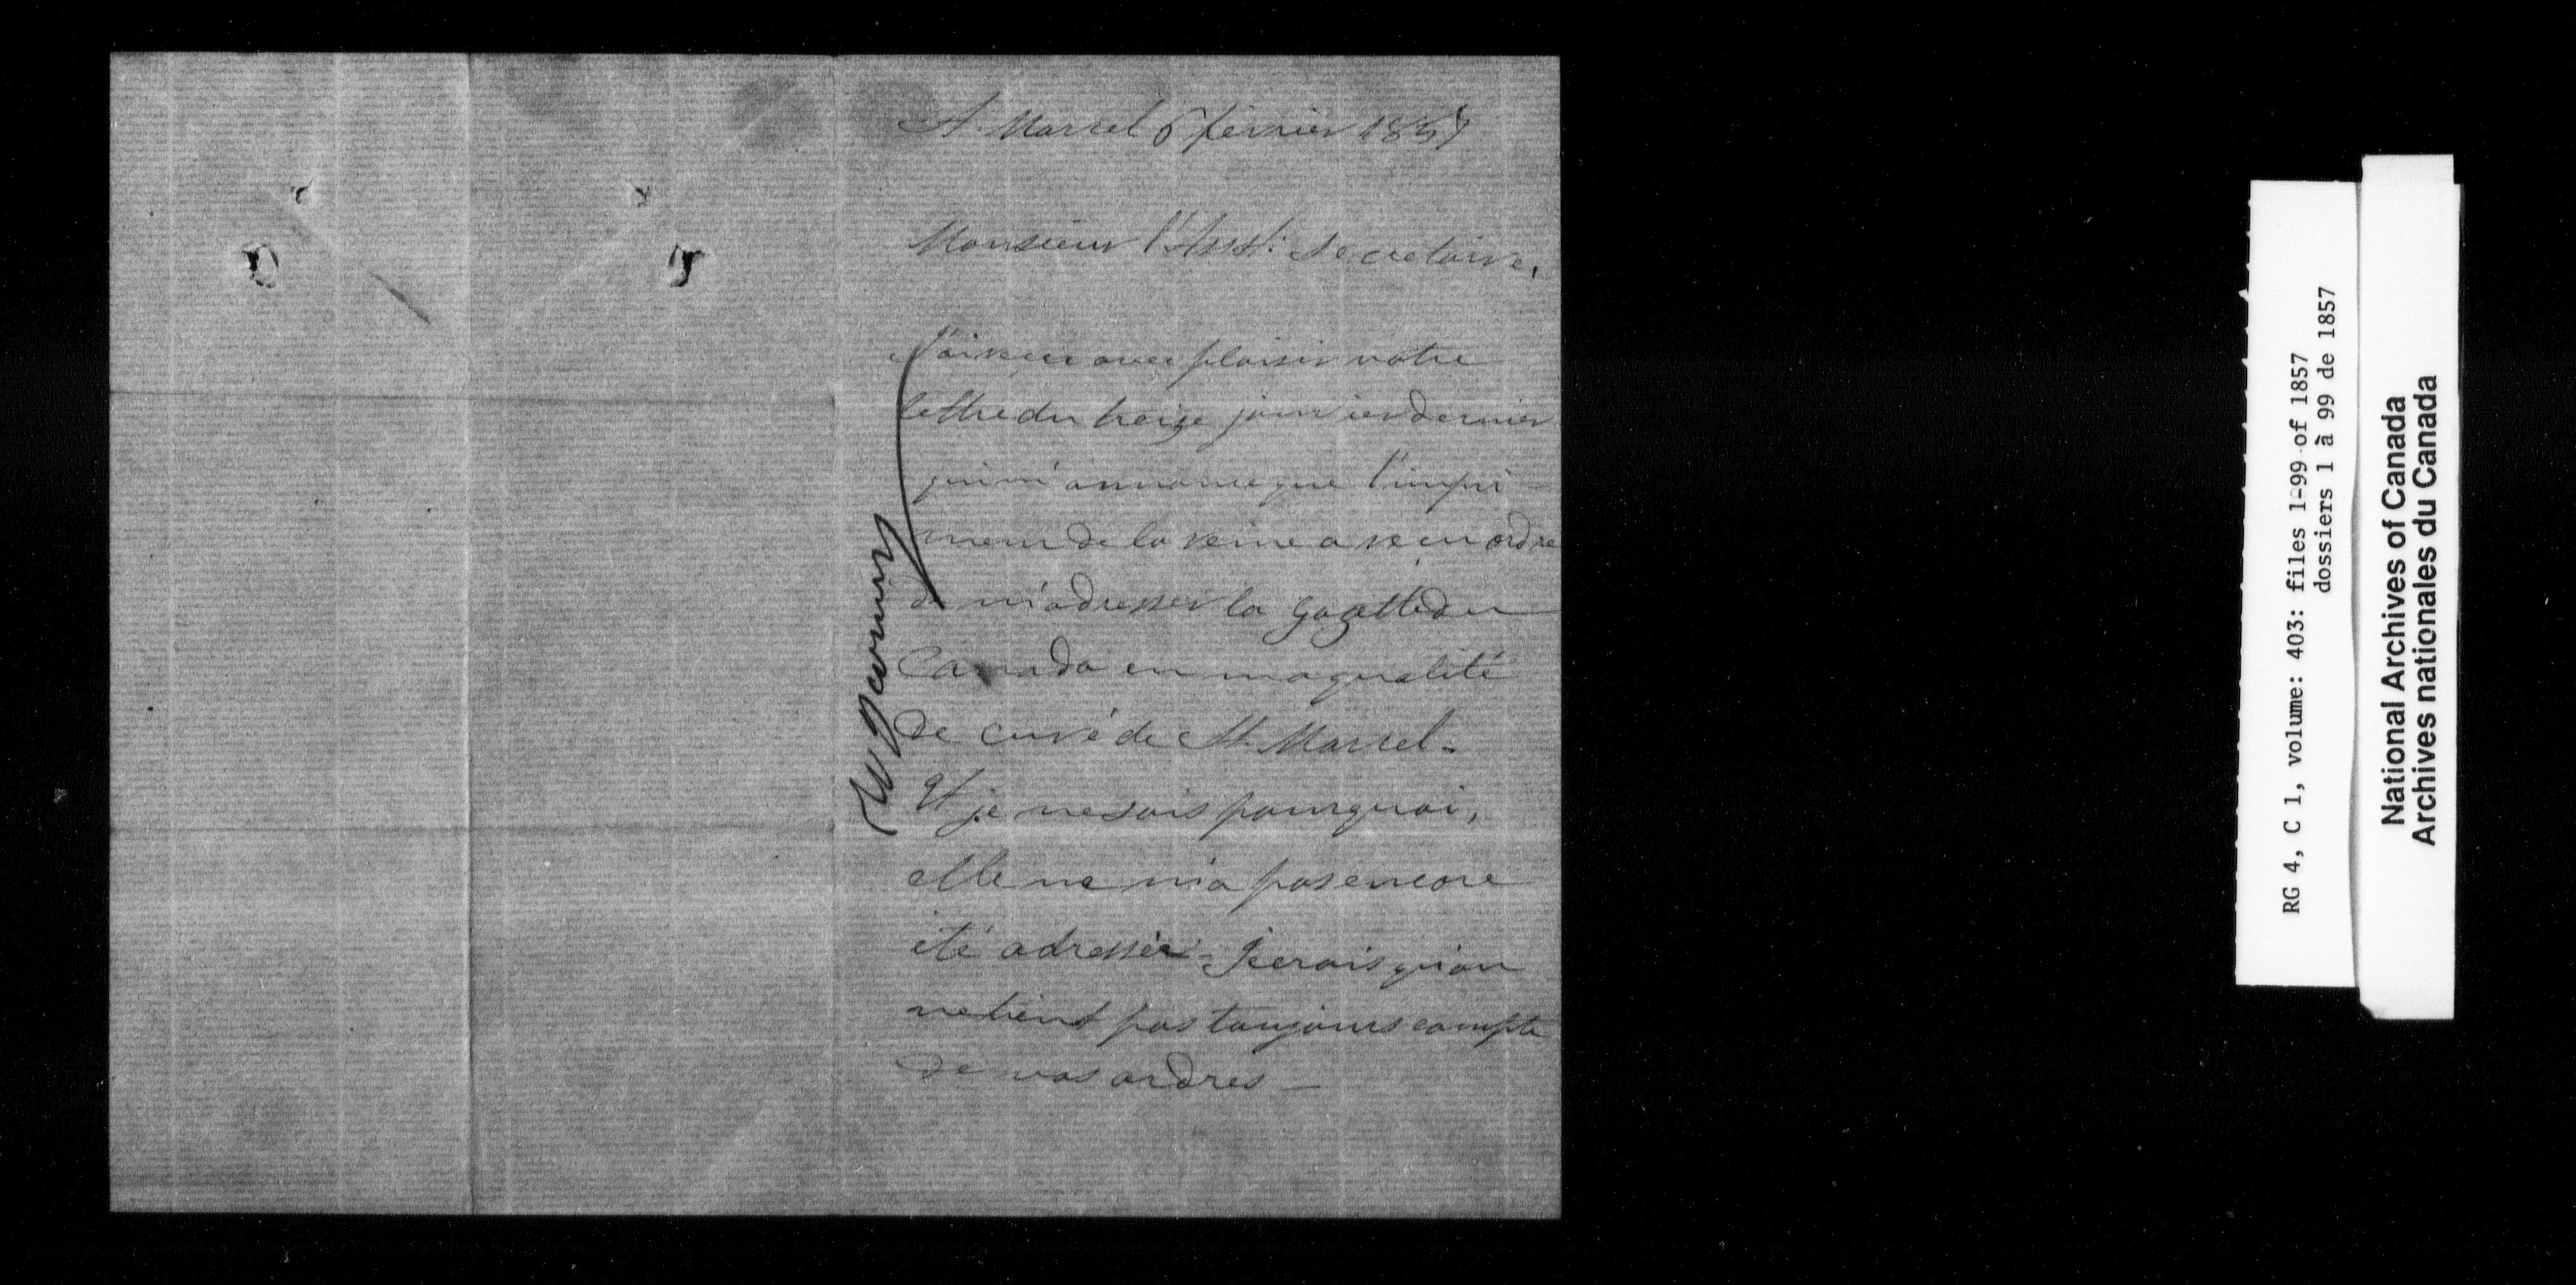 St. Marcel 6 février 1857
Monsieur l'Asst. Secretaire,
J'ai reçu avec plaisir votre
lettre du treize janvier dernier
qui m'annonce que l'impri-
meur de la reine a reçu ordre
de m'adresser la gazette du
Canada en ma qualité
de curé de St. Marcel-
Et je ne sais pourquoi,
elle ne m'a pas encore
été adressée - Je crois qu'on
ne tient pas toujours compte
de vos ordres -
RG 4, C 1, volume: 403: files 1-99 of 1857
dossiers 1 à 99 de 1857
National Archives of Canada
Archives nationales du Canada